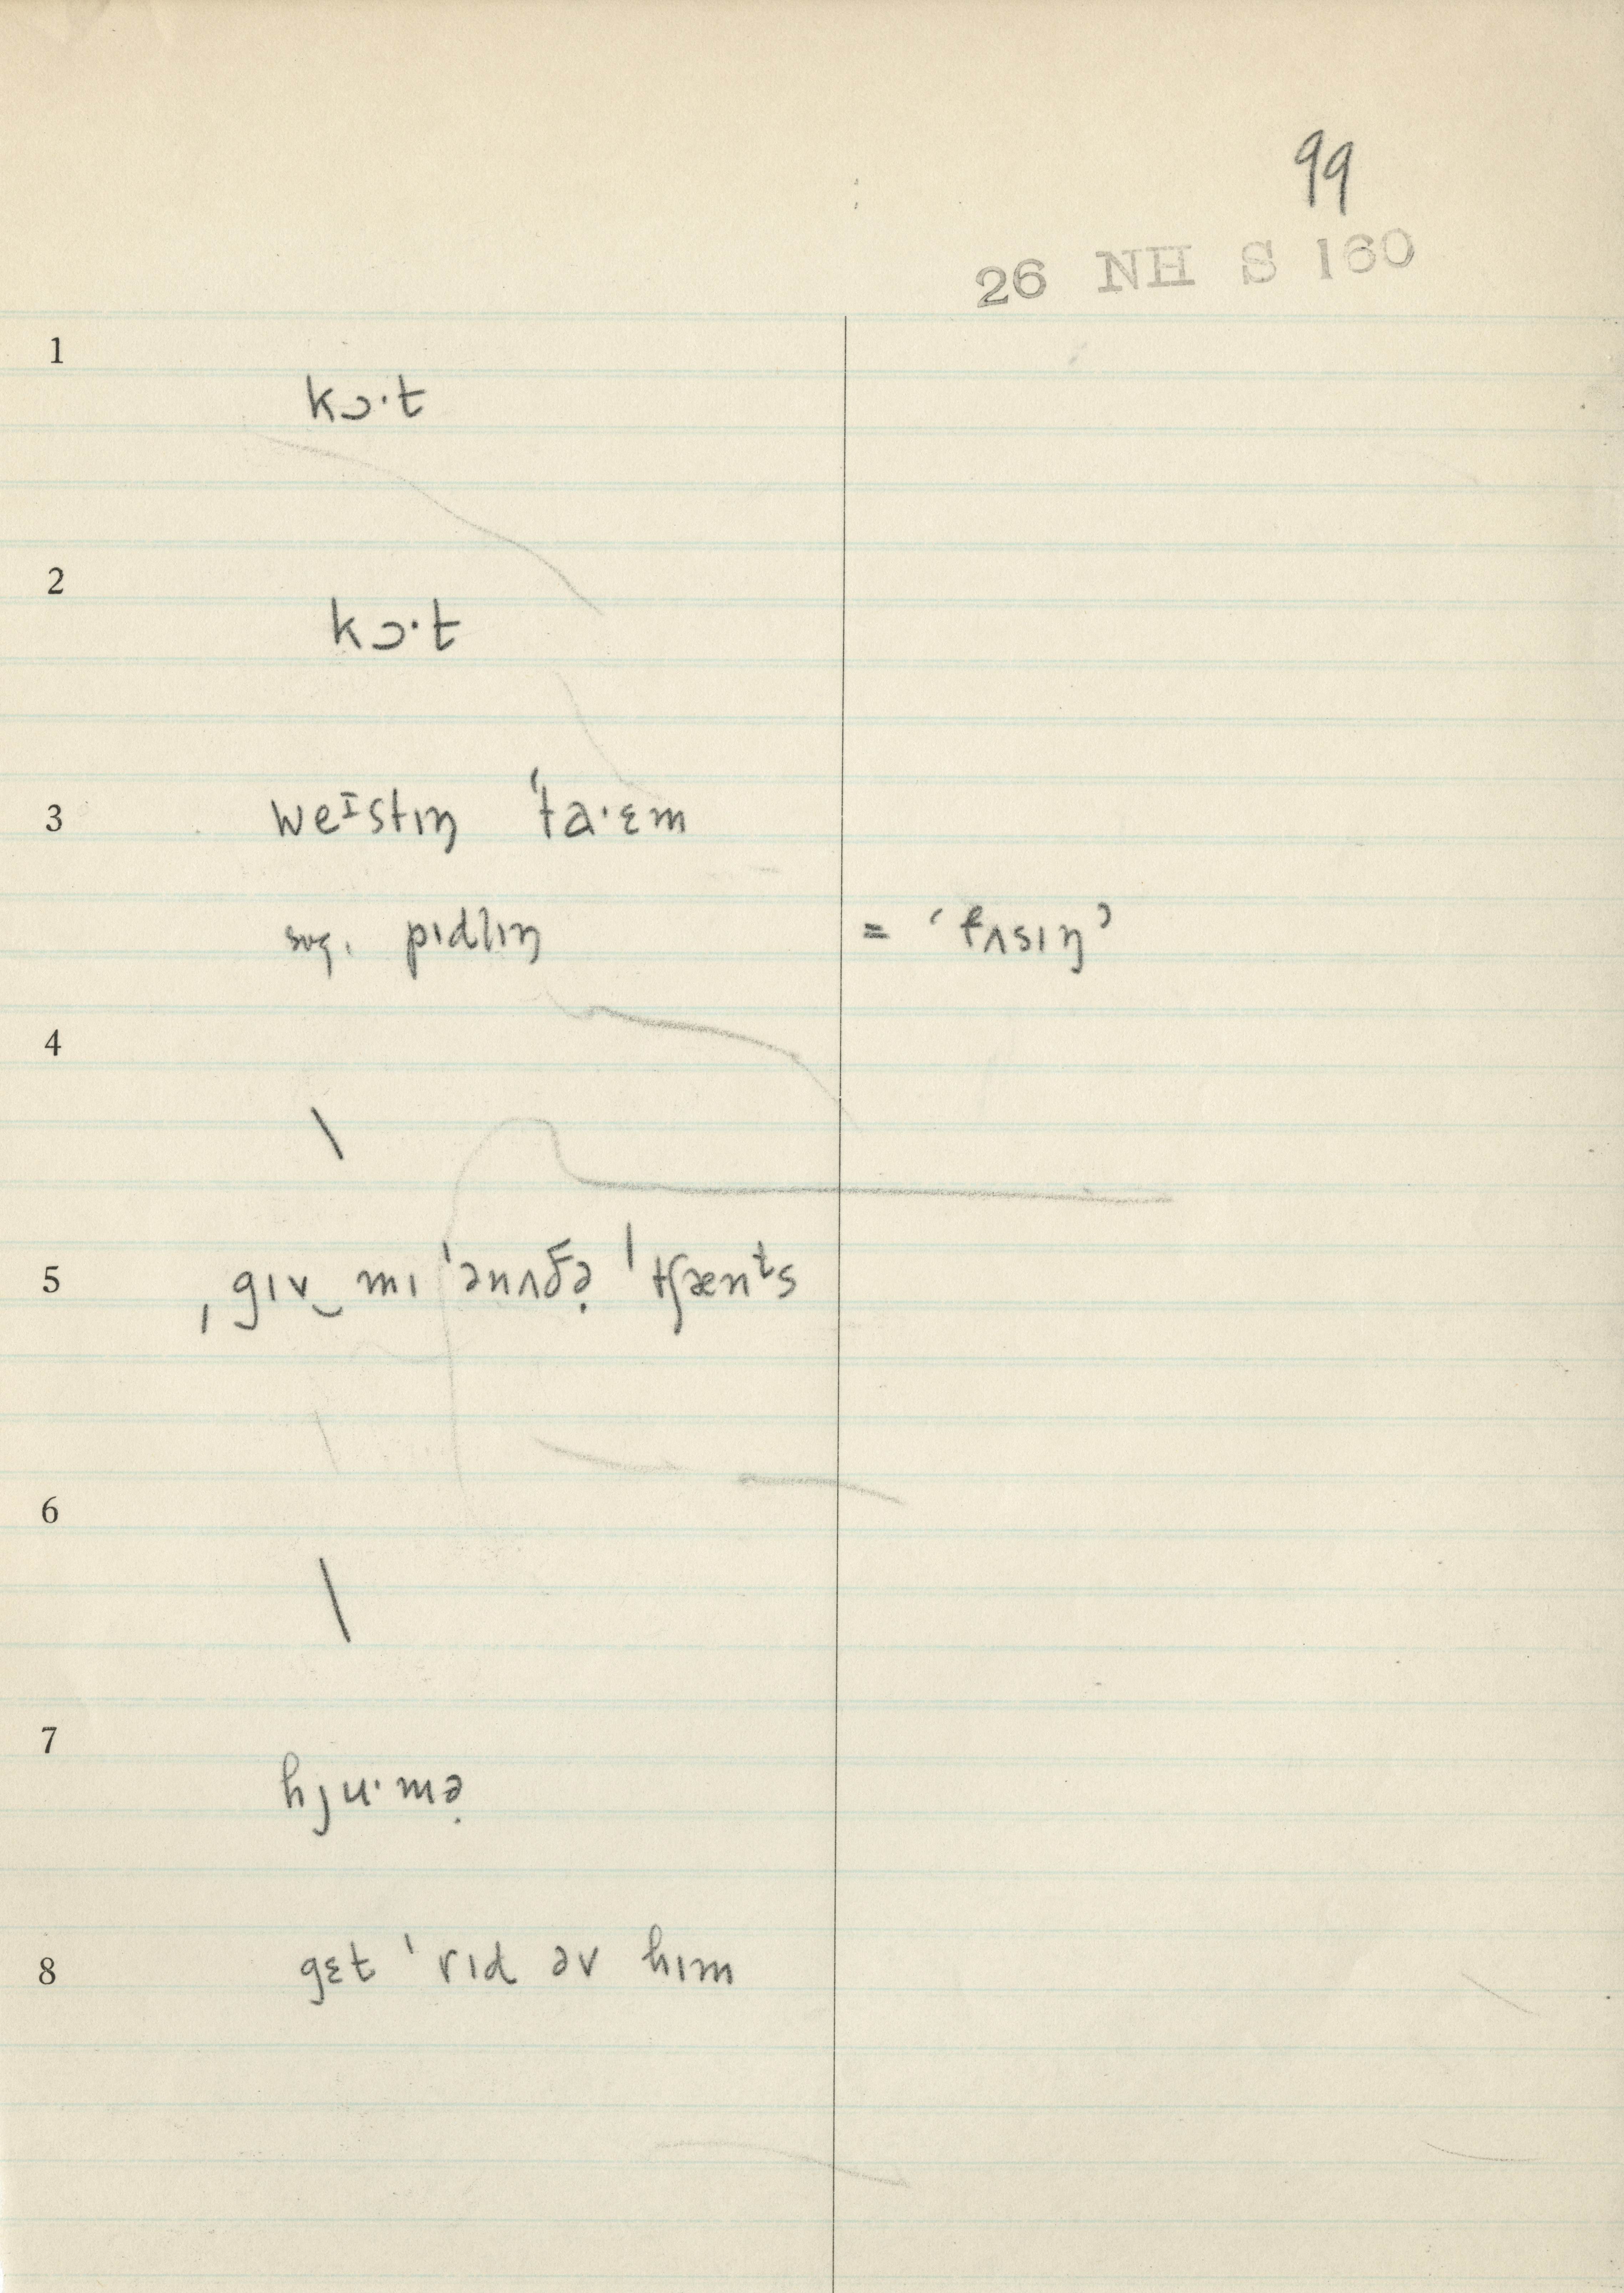 99
26 NH S 160
1
kɔ·t
2
kɔ·t
3 weᴵstɪŋ ˈta·ɛm
sug. pɪdlɪŋ = ‘fʌsɪŋ’
4
\
5 ˌgɪv‿mɪ ˈənʌðə̣ ˈtʃænᵗs
6
\
7
hju·mə̣
8 gɛt ˈrɪd əv hɪm